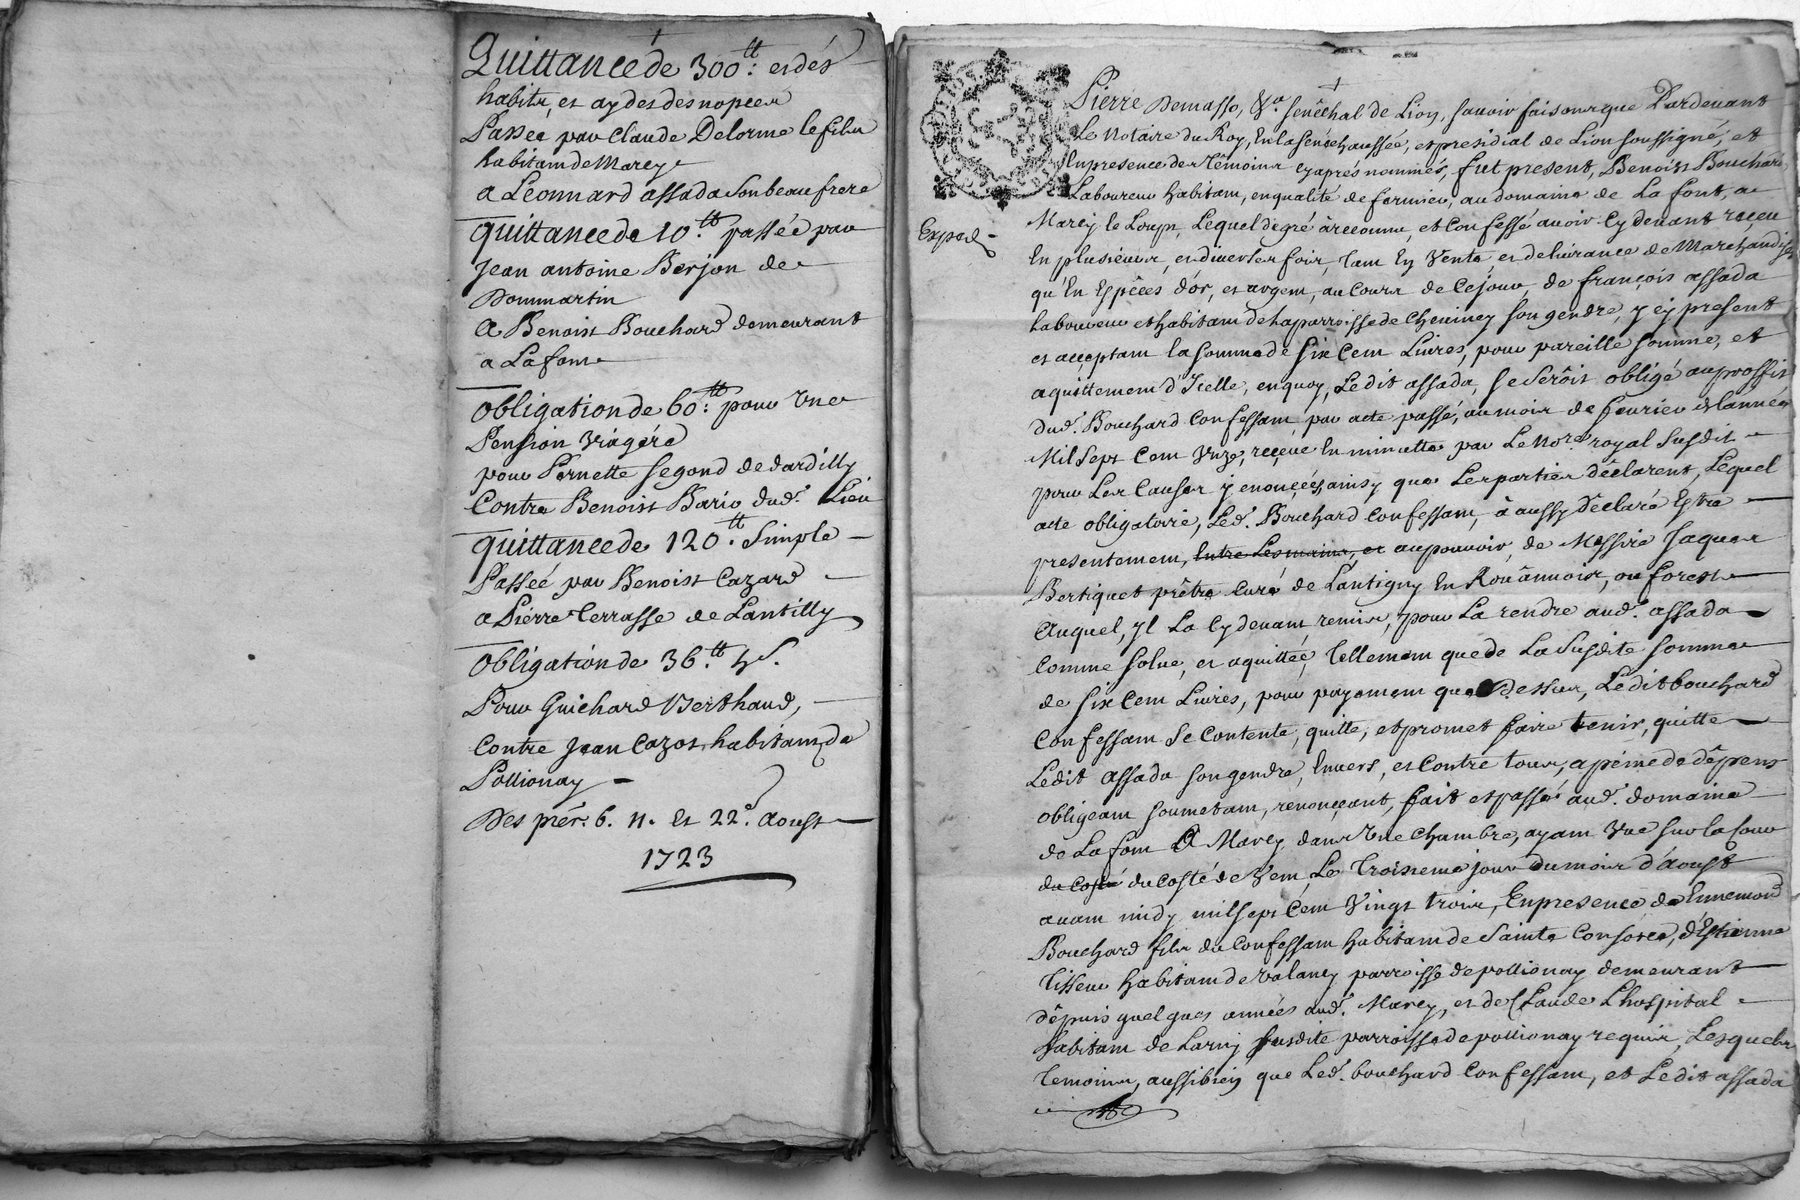 Quittance de 300.tt et des
habits, et aydes des nopces
Passée par Claude Delorme le fils
habitant de Marcy
a Leonnard assada son beau frere
quittance de 10.tt passée par
Jean antoine Berjon de
Dommartin
a Benoist Bouchard demeurant
a La font
obligation de 60.tt pour une
Pension viagére
pour Pernette segond de dardilly
Contre Benoist Bario dud. Lieu
quittance de 120.tt simple
Passée par Benoist Cazard
a Pierre Terrasse de Lantilly
obligation de 36.tt 4s.
Pour Guichard Berthaud,
Contre Jean Cazot habitant de
Pollionay
Des prer. 6. 11. et 22e. Aoust
1723
Pierre Demasso, Sr. senêchal de Lion, savoir faisons que Pardevant
Le Notaire du Roy, En la senéchaussée, et presidial de Lion soussigné, et
En presence des Temoins cy aprés nommés, fut present, Benoist Bouchard
Laboureur habitant, en qualité de fermier, au domaine de La font, a
Exped.
Marcy le Loup, Lequel de gré à reconnu, et Confessé avoir cy devant reçeu
En plusieurs, et diverses fois, Tant En Vente et delivrance de Marchandises
qu'En Espêces d'or, et argent, au Cours de Cejour, de françois assada
Laboureur et habitant de La parroisse de Cheviney son gendre, y ey present
et acceptant la somme de six Cent Livres, pour pareille somme, et
aquittement d'Icelle, en quoy, Le dit assada, se serôit obligé au proffit
dud. Bouchard Confessant, par acte passé, au mois de fevrier de l'année
Mil Sept Cent Unze, reçeue En minutte par Le Nore. royal susdit
pour Les Causes y enoncées, ainsy que Les parties déclarent, Lequel
acte obligatoire, Led. Bouchard Confessant, à aussy déclaré Estre
presentement, Entre Les mains, et au pouvoir, de Messire Jaques
Bertiquet prêtre Curé de Lantigny En Roüannois, ou forest
Auquel, yl La Cy devant remise, pour La rendre aud. assada
Comme solue, et aquittée, Tellement que de La Susdite somme
de six Cent Livres, pour payement que Dessus, Le dit bouchard
Confessant se Contente, quitte, et promet faire tenir, quitte
Ledit assada son gendre, Envers, et Contre tous, a peine de dêpens
obligeant soumetant, renonçant, fait et passé aud. domaine
de La font A Marcy dans Une Chambre, ayant Vue sur la Cour
du Costé du Costé de Vent, Le Troisieme jour du mois d'Aoust
avant midy mil sept Cent Vingt trois, En presence de Ennemond
Bouchard fils du Confessant habitant de Sainte Consorce, d'Estienne
Tisseur habitant de Valancy parroisse de pollionay demeurant
dêpuis quelques années aud. Marcy, et de Claude Lhospital
habitant de Larny susdite parroisse de pollionay requis, Lesquels
Temoins, aussibien que Led. bouchard Confessant, et Ledit assada